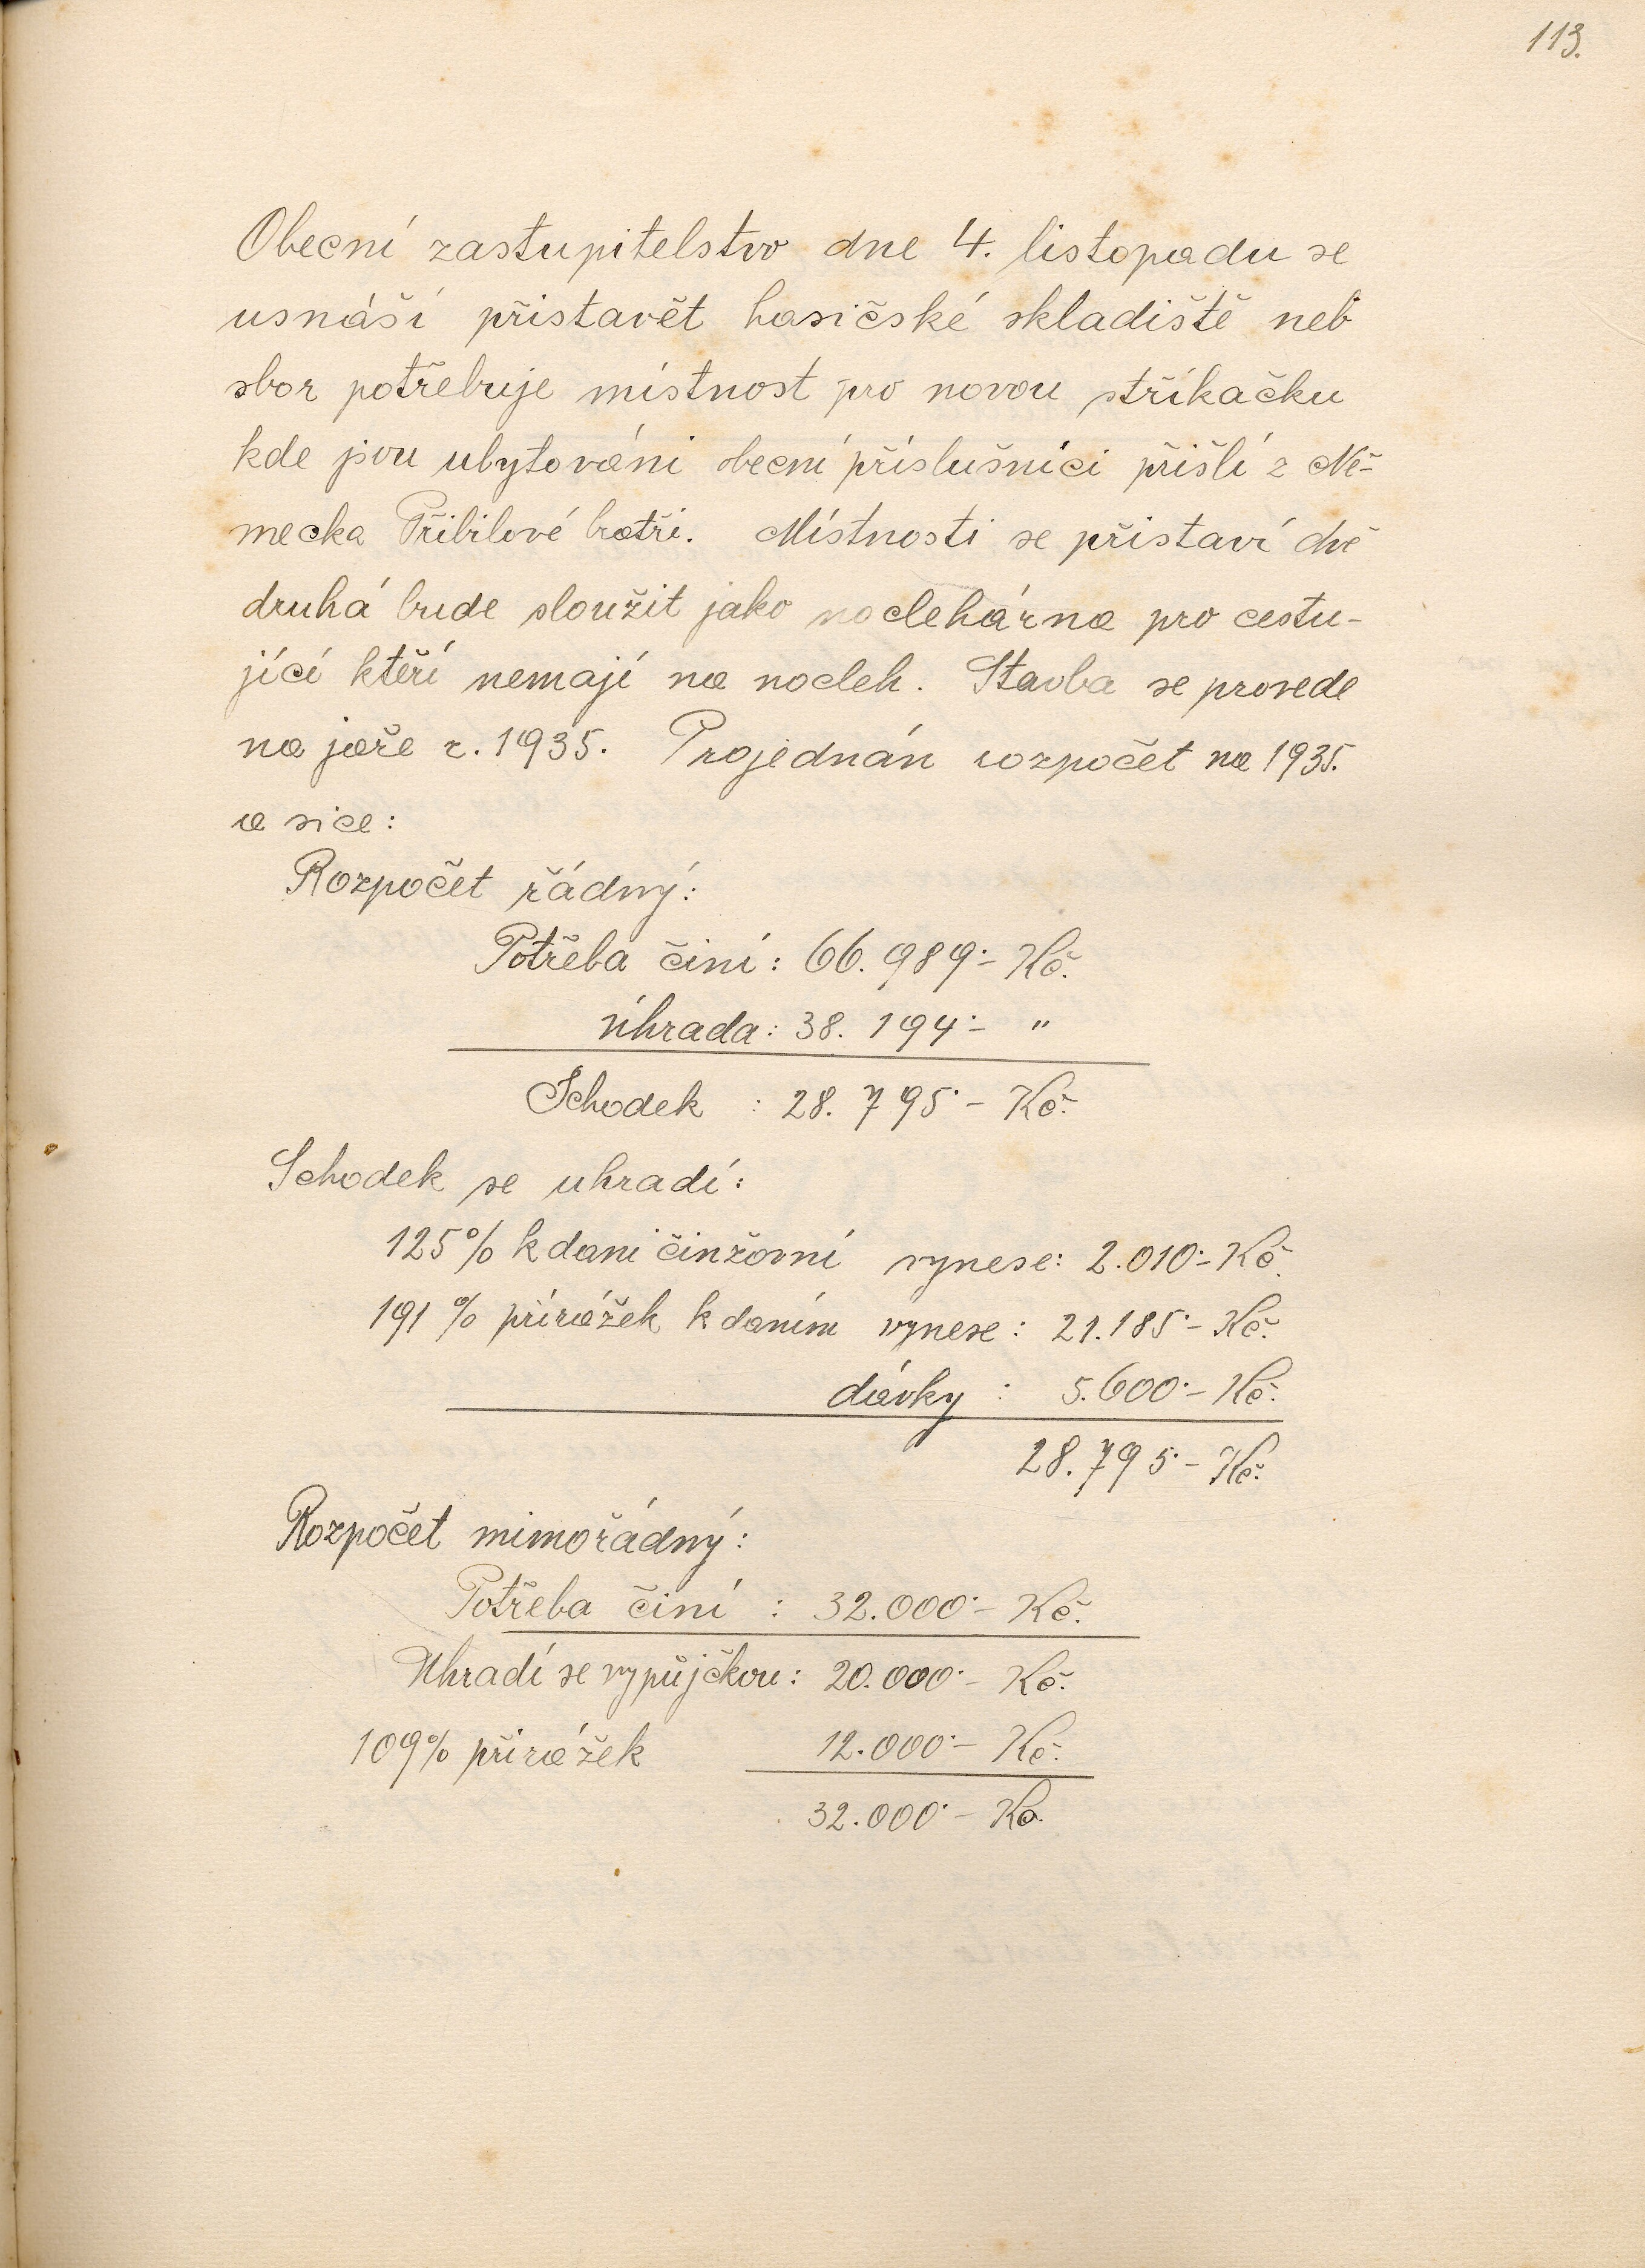 113.
Obecní zastupitelstvo dne 4. listopadu se
usnáší přistavět hasičské skladiště neb
sbor potřebuje místnost pro novou stříkačku
kde jsou ubytováni obecní příslušníci přišlí z Ně-
mecka Přibilové bratři. Místnosti se přistaví dvě
druhá bude sloužit jako noclehárna pro cestu-
jící kteří nemají na nocleh. Stavba se provede
na jaře r. 1935. Projednán rozpočet na 1935.
a sice:
Rozpočet řádný:
Potřeba činí: 66.989·- Kč.
úhrada: 38.194·- "
Schodek : 28.795·- Kč.
Schodek se uhradí:
125% k dani činžovní vynese: 2.010·- Kč.
191% přirážek k daním vynese: 21.185·- Kč.
dávky : 5.600·- Kč.
28.795·- Kč.
Rozpočet mimořádný:
Potřeba činí : 32.000·- Kč.
Uhradí se vypůjčkou: 20.000·- Kč.
109% přirážek 12.000·- Kč.
32.000·- Kč.